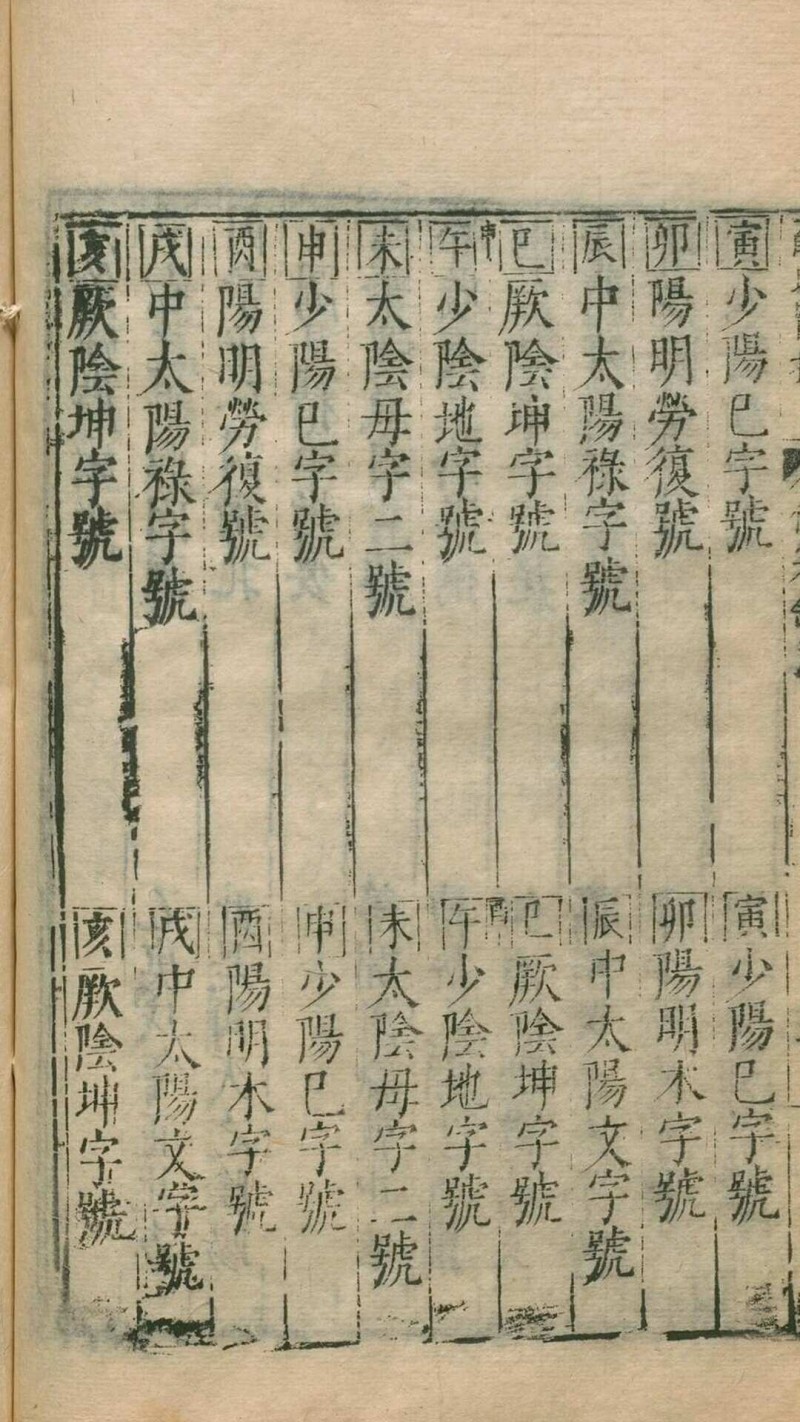 寅少陽巳字號
卯陽明勞復號
辰中太陽祿字號
巳厥陰坤字號
申
午少陰地字號
未太陰毋字二號
申少陽巳字號
酉陽明勞復號
戌中太陽祿字號
亥厥陰坤字號
寅少陽巳字號
卯陽明木字號
辰中太陽文字號
巳厥陰坤字號
酉
午少陰地字號
未太陰毋字二號
申少陽巳字號
酉陽明木字號
戌中太陽文字號
亥厥陰坤字號